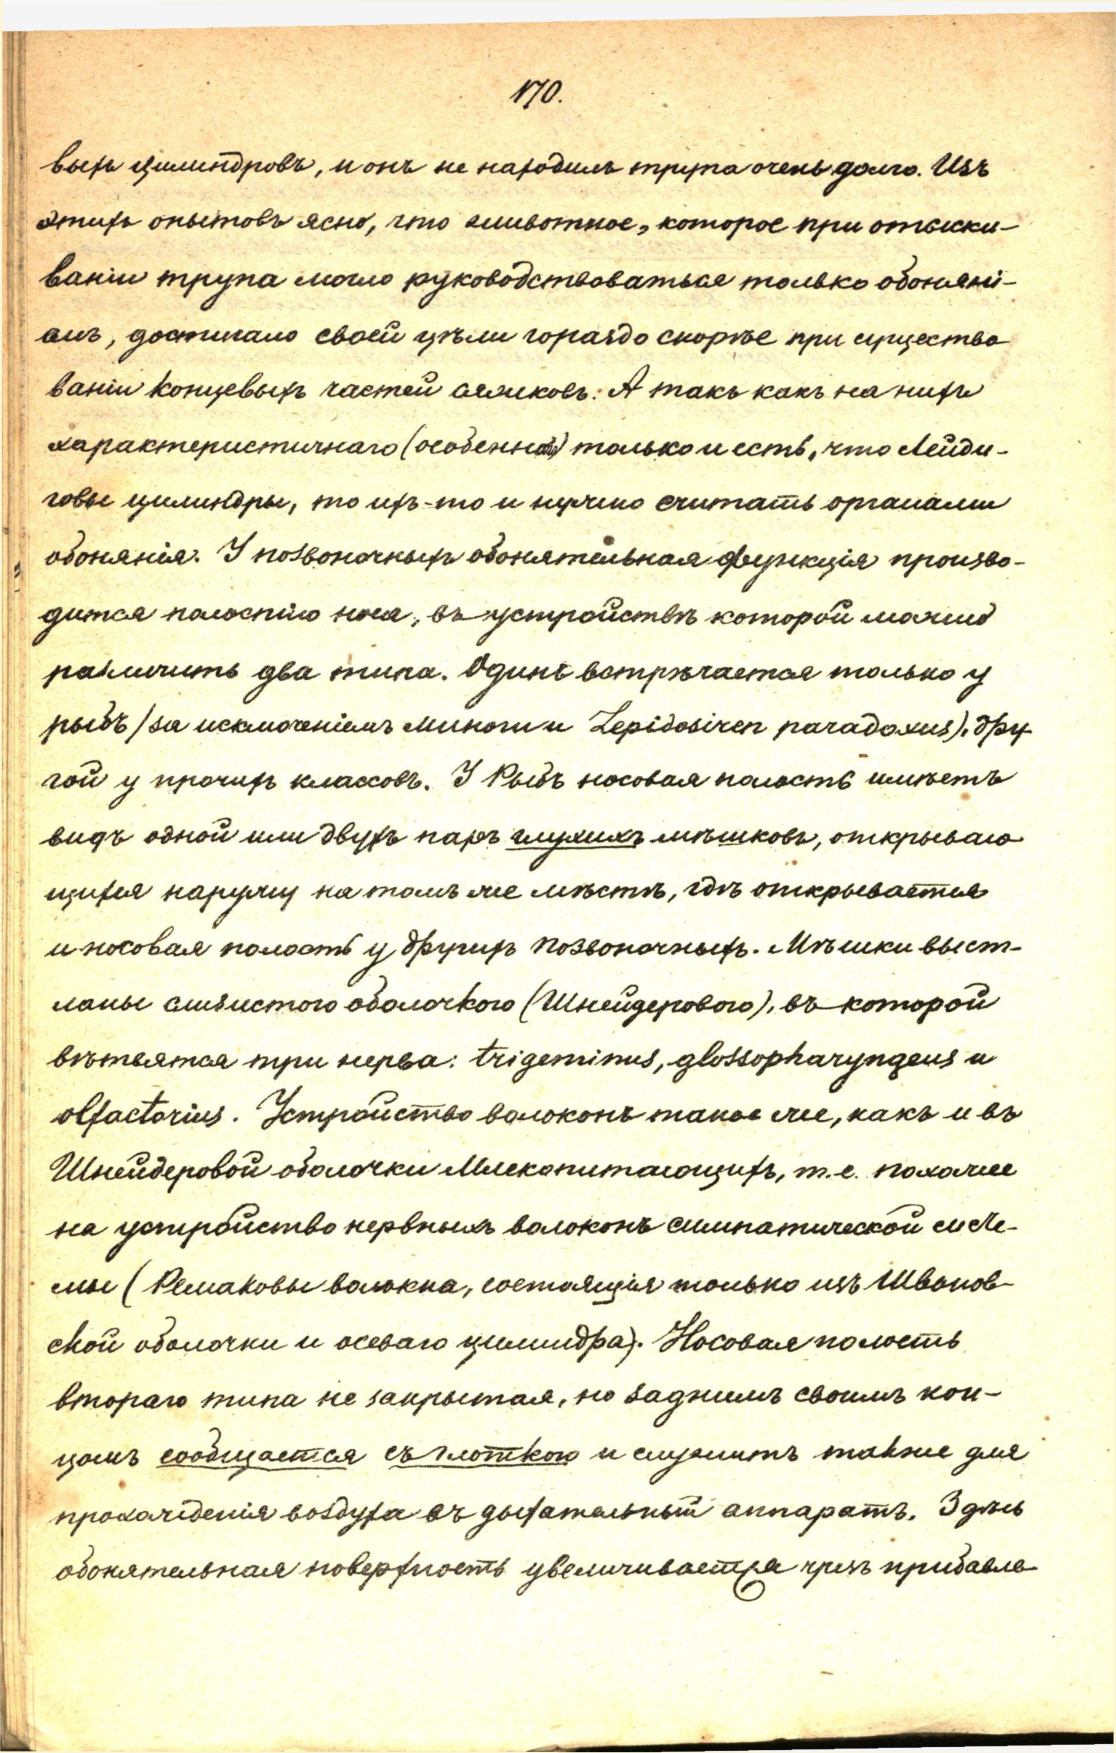 170.
выхъ цилиндровъ, и онъ не находилъ трупа очень долго. Изъ
этихъ опытовъ ясно, что животное, которое при отыски-
ваніи трупа могло руководствоваться только обоняні-
емъ, достигало своей цѣли гораздо скорѣе при существо
ваніи концевыхъ частей сяжковъ. А такъ какъ на нихъ
характеристичнаго (особенно) только и есть, что Лейди-
говы цилиндры, то ихъ-то и нужно считать органами
обонянія. У позвоночныхъ обонятельная функція произво-
дится полостію носа, въ устройствѣ которой можно
различить два типа. Одинъ встрѣчается только у
рыбъ (за исключеніемъ Миноги и Lepidosiren paradoxus), дру
гой у прочихъ классовъ. У Рыбъ носовая полость имѣетъ
видъ одной или двухъ паръ глухихъ мѣшковъ, открываю
щихся наружу на томъ же мѣстѣ, гдѣ открывается
и носовая полость у другихъ позвоночныхъ. Мѣшки выст-
ланы слизистого оболочкого (Шнейдерового), въ которой
вѣтвятся три нерва: trigeminus, glossopharyngeus и
olfactorius. Устройство волоконъ такое же, какъ и въ
Шнейдеровой оболочки Млекопитающихъ, т.е. похожее
на устройство нервныхъ волоконъ симпатической систе-
мы (Ремаковы волокна, состоящія только изъ Шванов-
ской оболочки и осеваго цилиндра). Носовая полость
втораго типа не закрытая, но заднимъ своимъ кон-
цомъ сообщается съ глоткою и служитъ также для
прохожденія воздуха въ дыхательный аппаратъ. Здѣсь
обонятельная поверхность увеличивается чрезъ прибавле